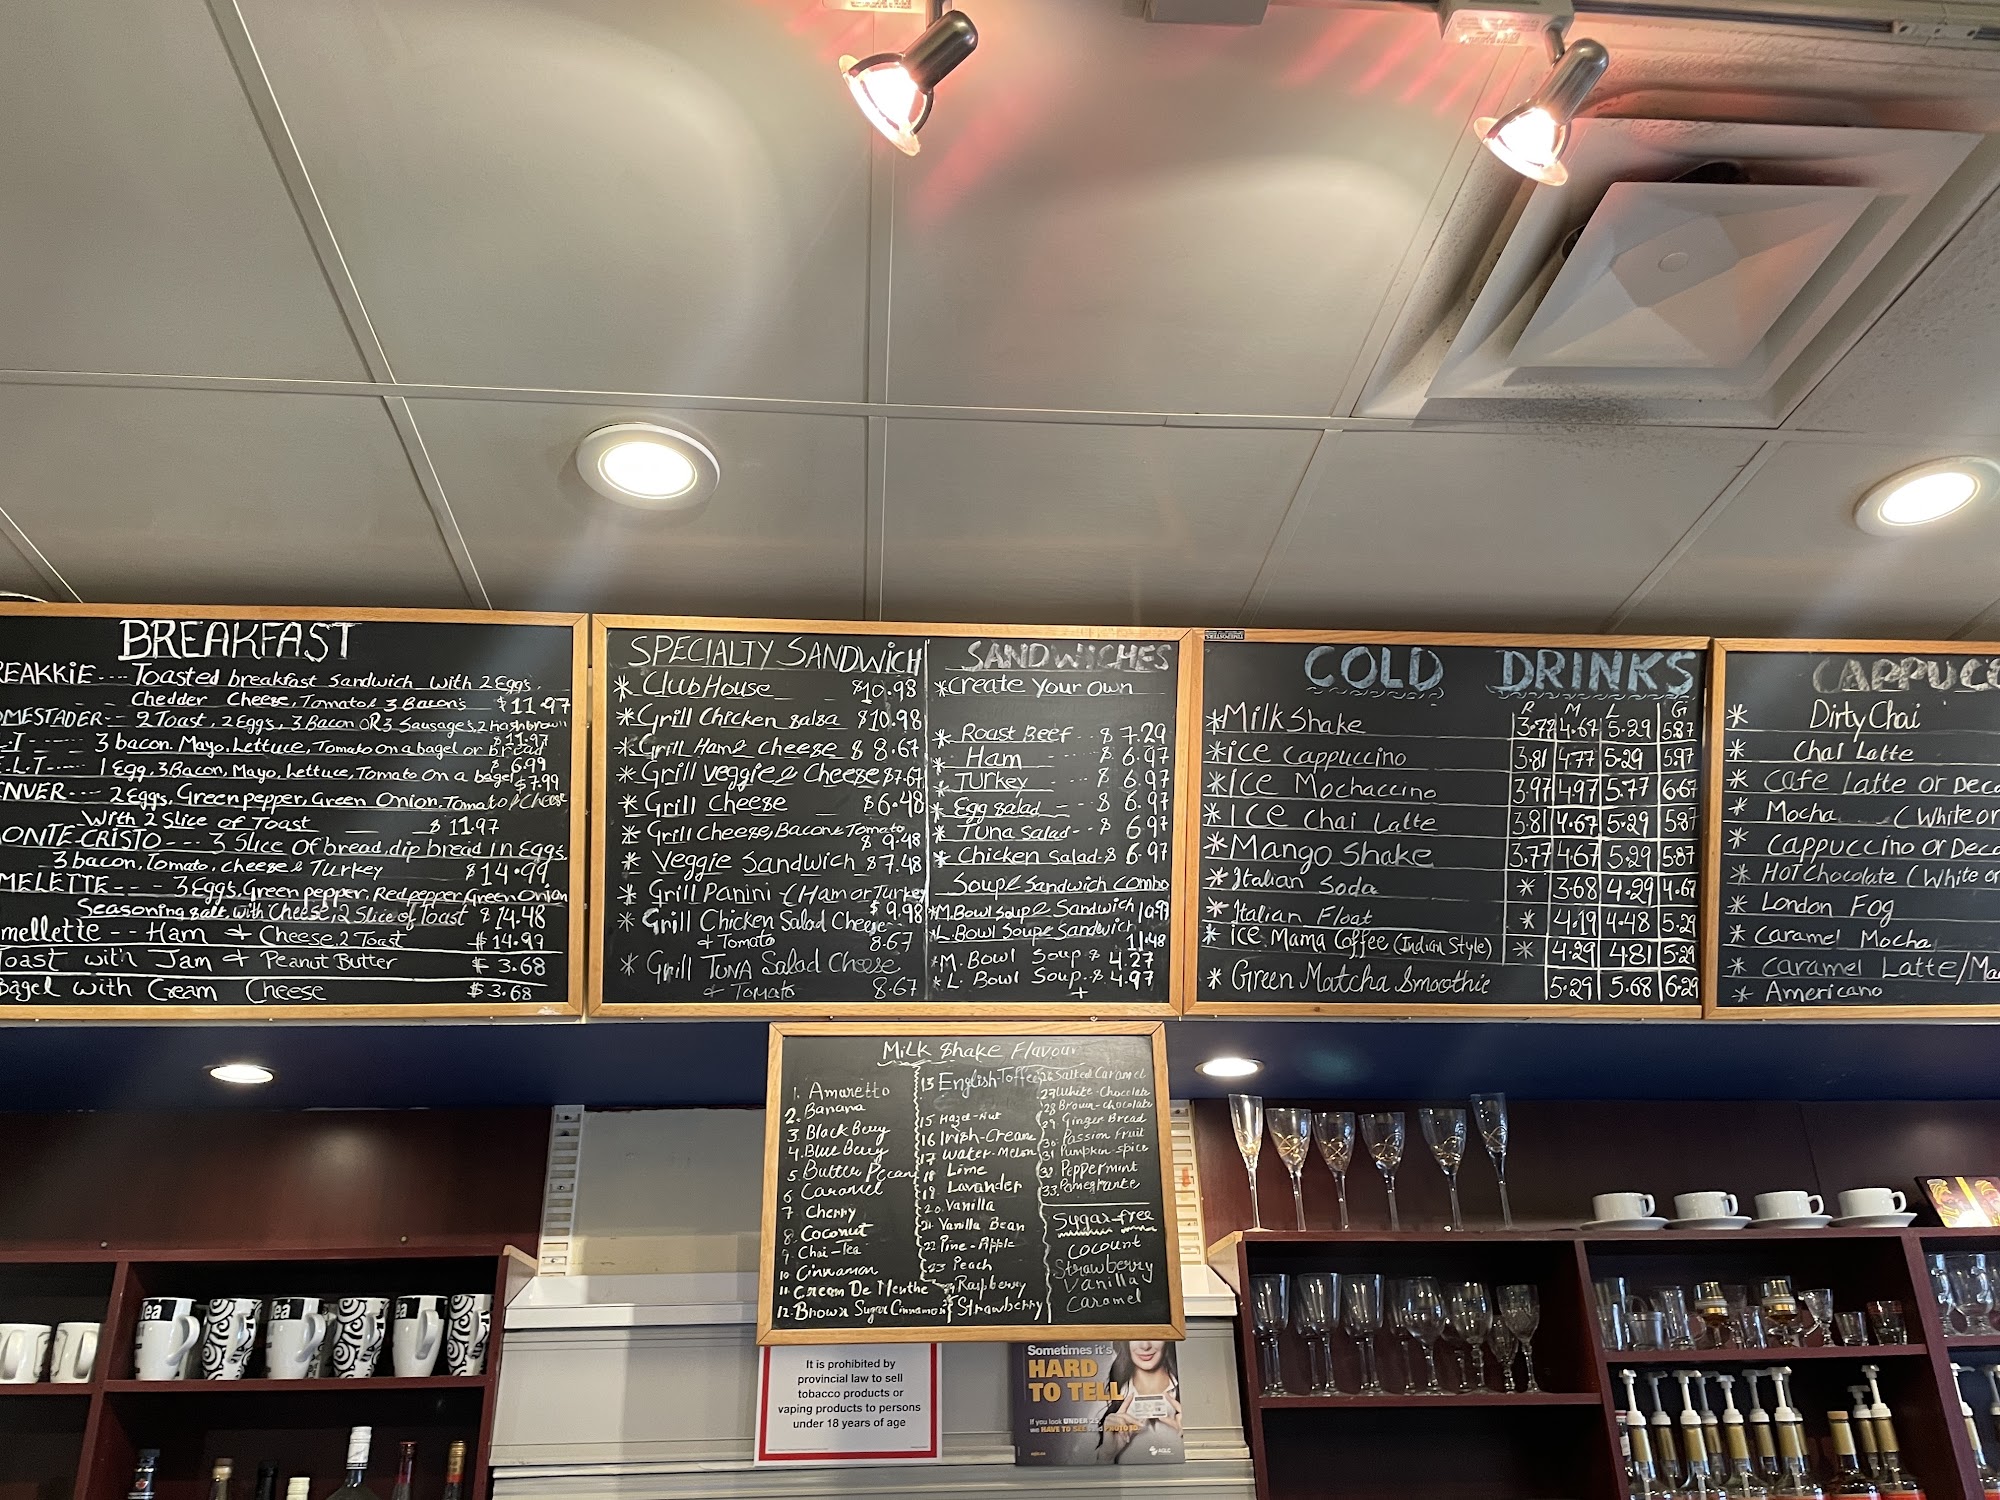 BREAKFAST
REAKKIE---- Toasted breakfast sandwich with 2 Eggs,
Chedder Cheese, Tomato & 3 Bacon's $11.97
MESTADER-- 2 Toast, 2 Eggs, 3 Bacon OR 3 Sausages, 2 hashbrown
$11.97
3 bacon, Mayo, Lettuce, Tomato on a bagel or bread
$6.99
L.T---- 1 Egg, 3 Bacon, Mayo, Lettuce, Tomato on a bagel
$7.99
NVER--- 2 Eggs, Green pepper, Green Onion, Tomato & Cheese
With 2 Slice of Toast $11.97
ONTE-CRISTO--- 3 Slice of bread, dip bread in Eggs,
3 bacon, Tomato, cheese & Turkey $14.99
MELETTE--- 3 Eggs, Green pepper, Red pepper, Green Onion
Seasoning salt, with Cheese, 2 Slice of Toast $14.48
mellette -- Ham & Cheese, 2 Toast $14.99
Toast with Jam & Peanut Butter $3.68
Bagel with Cream Cheese $3.68
SPECIALTY SANDWICH
* Club House $10.98
* Grill Chicken Salsa $10.98
* Grill Ham & Cheese $8.67
* Grill Veggie & Cheese $7.67
* Grill Cheese $6.48
* Grill Cheese, Bacon & Tomato
$9.48
* Veggie Sandwich $7.48
* Grill Panini - (Ham or Turkey
$9.98
* Grill Chicken Salad Cheese
& Tomato 8.67
* Grill TUNA Salad Cheese
& Tomato 8.67
SANDWICHES
*Create Your Own
* Roast Beef -- $7.29
* Ham --- $6.97
* Turkey --- $6.97
* Egg salad -- $6.97
* Tuna Salad-- $6.97
* Chicken Salad-$6.97
Soup & Sandwich Combo
*M. Bowl Soup & Sandwich 10.97
*L. Bowl Soup & Sandwich
11.48
*M. Bowl Soup $4.27
*L. Bowl Soup.$4.97
COLD DRINKS
R M L G
*Milk Shake 3.77 4.67 5.29 5.87
*ice Cappuccino 3.81 4.77 5.29 5.97
*ICE Mochaccino 3.97 4.97 5.77 6.67
*ICE Chai Latte 3.81 4.67 5.29 5.87
*Mango Shake 3.77 4.67 5.29 5.87
*Italian Soda * 3.68 4.29 4.67
*Italian Float * 4.19 4.48 5.29
*ice Mama Coffee (Indian Style) * 4.29 4.81 5.29
* Green Matcha Smoothie 5.29 5.68 6.29
CAPPUCC
* Dirty Chai
* Chai Latte
* Cafe Latte or Deca
* Mocha (White or
* Cappuccino or Deca
* HOT Chocolate (White or
* London Fog
* Caramel Mocha
* Caramel Latte/Ma
* Americano
Milk Shake Flavour
1. Amaretto
2. Banana
3. Black Berry
4. Blue Berry
5. Butter Pecan
6 Caramel
7 Cherry
8. Coconut
9. Chai-Tea
10 Cinnamon
11. Cream De Menthe
12. Brown Sugar Cinnamon
13 English-Toffee
15 Hazel-Nut
16 Irish-Cream
17 Water-Melon
18 Lime
19. Lavander
20. Vanilla
21. Vanilla Bean
22 Pine-Apple
23 Peach
24 Raspberry
Strawberry
26 Salted Caramel
27 White-Chocolate
28 Brown-chocolate
29. Ginger Bread
30. Passion Fruit
31 Pumpkin spice
32 Peppermint
33. Pomegrante
Sugar-free
Cocount
Strawberry
Vanilla
Caramel
It is prohibited by
provincial law to sell
tobacco products or
vaping products to persons
under 18 years of age
Sometimes it's
HARD
TO TELL
If you look UNDER 25,
we HAVE TO SEE PHOTO ID.
AGLC
Tea
ea
ea